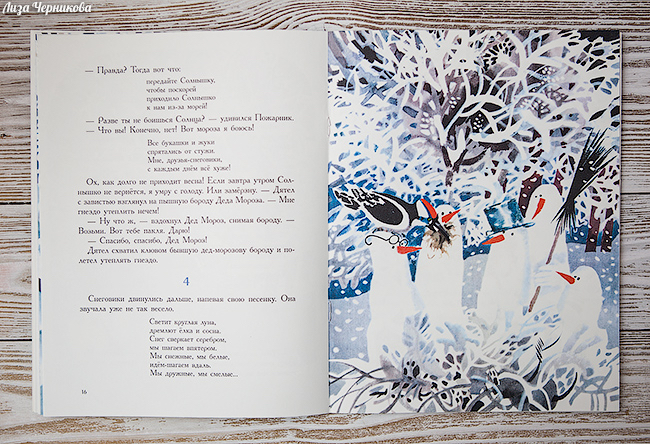 Лиза Черникова
— Правда? Тогда вот что:
передайте Солнышку,
чтобы поскорей
приходило Солнышко
к нам из-за морей!
— Разве ты не боишься Солнца? — удивился Пожарник.
— Что вы! Конечно, нет! Вот мороза я боюсь!
Все букашки и жуки
спрятались от стужи.
Мне, друзья-снеговики,
с каждым днём всё хуже!
Ох, как долго не приходит весна! Если завтра утром Сол-
нышко не вернётся, я умру с голоду. Или замёрзну. — Дятел
с завистью взглянул на пышную бороду Деда Мороза. — Мне
гнездо утеплить нечем!
— Ну что ж, — вздохнул Дед Мороз, снимая бороду. —
Возьми. Вот тебе пакля. Дарю!
— Спасибо, спасибо, Дед Мороз!
Дятел схватил клювом бывшую дед-морозову бороду и по-
летел утеплять гнездо.
4
Снеговики двинулись дальше, напевая свою песенку. Она
звучала уже не так весело.
Светит круглая луна,
дремлют ёлка и сосна.
Снег сверкает серебром,
мы шагаем впятером.
Мы снежные, мы белые,
идём-шагаем вдаль.
Мы дружные, мы смелые...
16